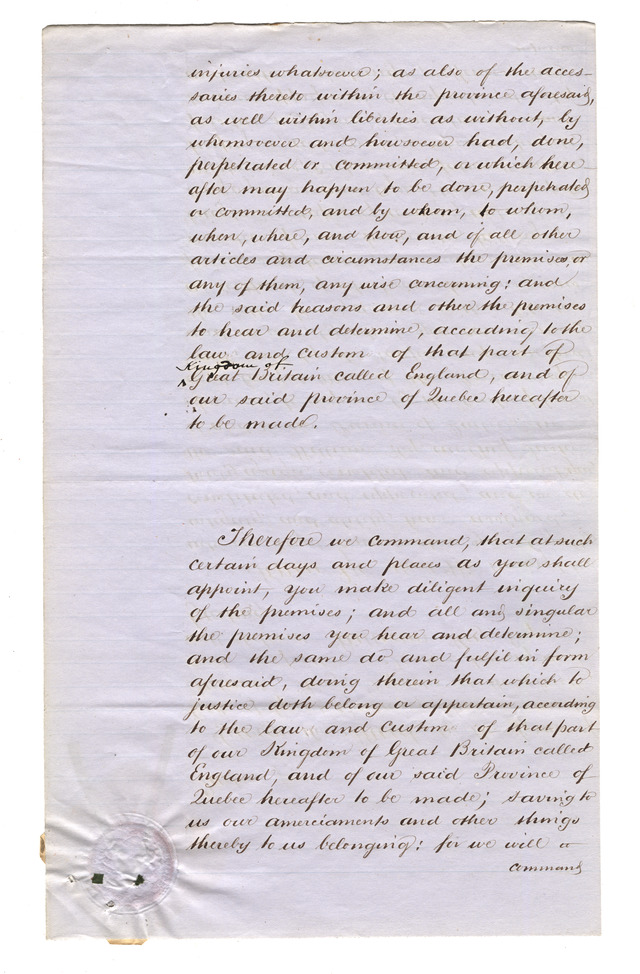 injuries whatsoever; as also of the acces-
saries thereto within the province aforesaid,
as well within liberties as without, by
whomsoever and howsoever had, done,
perpetrated or committed, or which here
after may happen to be done, perpetrated
or committed, and by whom, to whom,
when, where, and how, and of all other
articles and circumstances the premises, or
any of them, any wise concerning; and
the said treasons and other the premises
to hear and determine, according to the
law and custom of that part of
Kingdom of
Great Britain called England, and of
our said province of Quebec hereafter
to be made.
Therefore we command, that at such
certain days and places as you shall
appoint, you make diligent inquiry
of the premises; and all and singular
the premises you hear and determine;
and the same do and fulfil in form
aforesaid, doing therein that which to
justice doth belong or appertain, according
to the law and custom of that part
of our Kingdom of Great Britain called
England, and of our said Province of
Quebec hereafter to be made; saving to
us our amerciaments and other things
thereby to us belonging: for we will
command